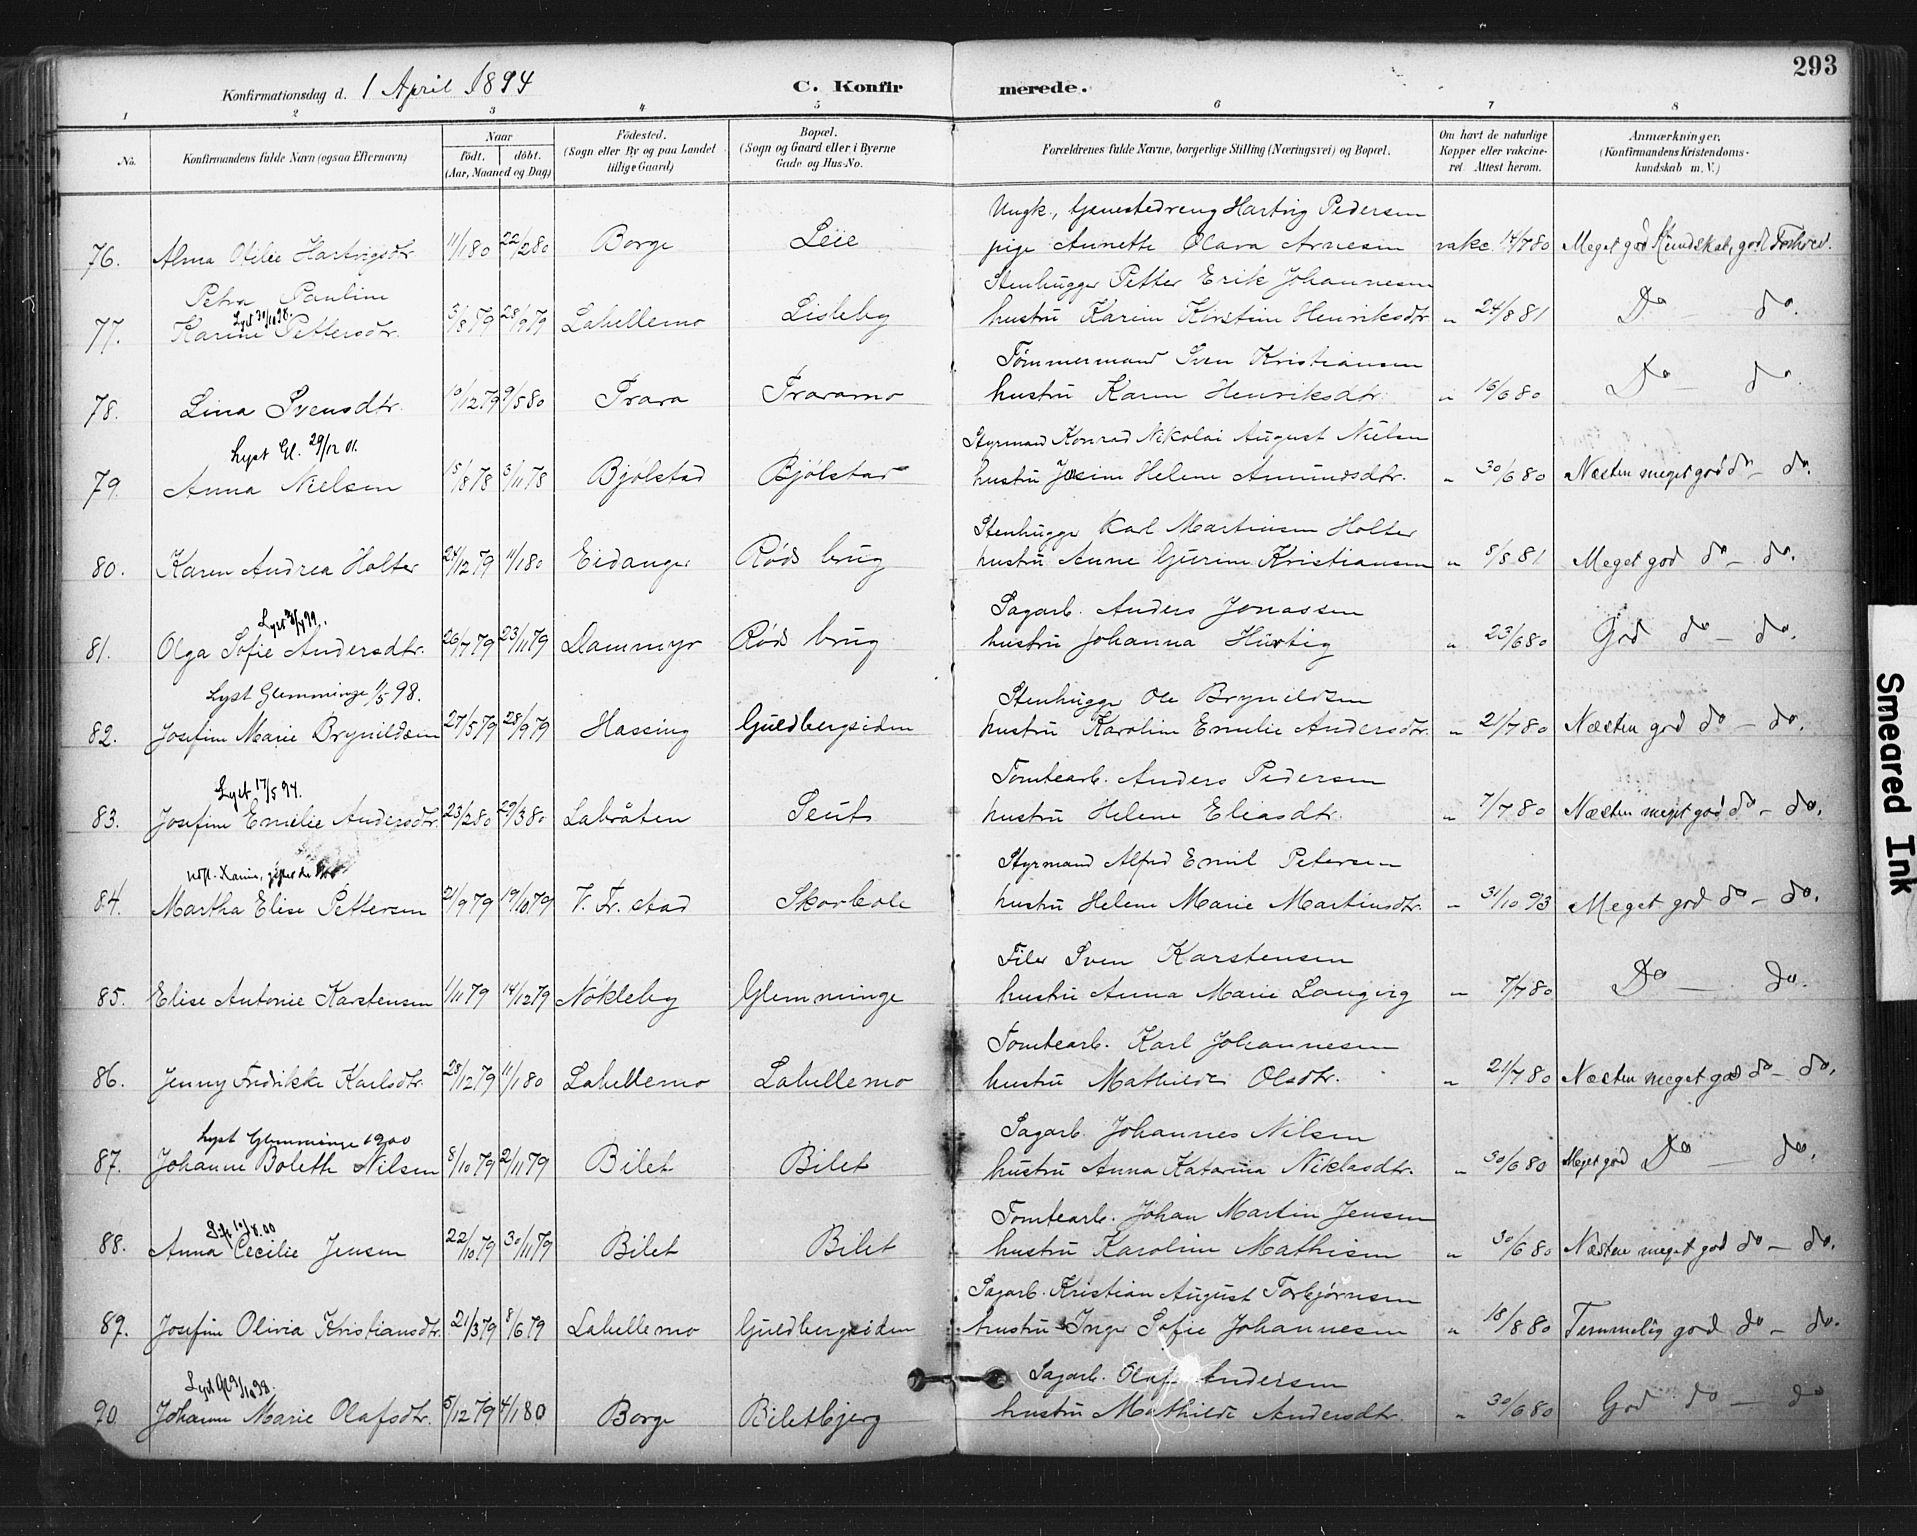 293
Konfirmationsdag d. 1 April 1894 C. Konfirmerede.
1 2 3 4 5 6 7 8
No. Konfirmandens fulde Navn (ogsaa Efternavn) Naar født. døbt. (Aar, Maaned og Dag) Fødested. (Sogn eller By og paa Landet tillige Gaard) Bopæl. (Sogn og Gaard eller i Byerne Gade og Hus-No. Forældrenes fulde Navne, borgerlige Stilling (Næringsvei) og Bopæl. Om havt de naturlige Kopper eller vakcineret. Attest herom. Anmærkninger. (Konfirmandens Kristendomskundskab m. V.)
Ungk., tjenestedreng Hartvig Pedersen
76. Alma Otilie Hartvigsdtr. 11/1 80 22/2 80 Borge Leie pige Annette Olava Arnesen vakc. 14/7 80 Meget god Kundskab, god Forhold.
Petra Pauline Stenhugger Petter Erik Johannesen
Lyst 30/10 98.
77. Karine Pettersdtr. 5/8 79 28/9 79 Labellemo Lisleby hustru Karin Kirstine Henriksdtr " 24/8 81 Do do.
Tømmermand Sven Kristiansen
78. Lina Svensdtr. 10/12 79 9/5 80 Trara Traramo hustru Karen Henriksdtr. " 16/6 80 Do - do.
Lyst Gl. 29/12 01. Styrmand Konrad Nikolai August Nielsen
79. Anna Nielsen 15/8 78 3/11 78 Bjølstad Bjølstad hustru Josine Helene Amundsdtr. " 30/6 80 Næsten meget god do - do.
Stenhugger Karl Martinsen Holter
80. Karen Andrea Holter 24/12 79 11/1 80 Eidanger Røds brug hustru Anne Gurine Kristiansen " 8/8 81 Meget god do - do.
Sagarb. Anders Jonassen
81. Olga Sofie Andersdtr. 26/7 79 23/11 79 Dammyr Røds brug hustru Johanna Hurtig " 23/6 80 God do - do.
Lyst Glemminge 1/5 98. Stenhugger Ole Bryneldsen
82. Josefine Marie Brynildsen 27/5 79 28/9 79 Hassing Guldbergsiden hustru Karoline Emilie Andersdtr. " 21/7 80 Næsten god do - do.
Lyst 17/5 94. Tomtearb. Anders Pedersen
83. Josefine Emilie Andersdtr. 23/2 80 29/3 80 Labråten Seut hustru Helene Eliasdtr. " 7/7 80 Næsten meget god do - do.
Styrmand Alfred Emil Petersen
84. Martha Elise Pettersen 21/9 79 19/10 79 V. Fr. stad Skorbole hustru Helene Marie Martinsdtr. " 31/10 93 Meget god do - do.
Filer Sven Karstensen
85. Elise Antonie Karstensen 1/11 79 14/12 79 Nøkleby Glemminge hustru Anna Marie Langvig " 7/7 80 Do - do.
Tomtearb. Karl Johannesen
86. Jenny Fredrikke Karlsdtr. 28/12 79 11/1 80 Labellemo Labellemo hustru Mathilde Olsdtr. " 21/7 80 Næsten meget god do - do.
Lyst Glemminge 1900 Sagarb. Johannes Nilsen
87. Johanne Bolette Nilsen 8/10 79 2/11 79 Bilet Bilet hustru Anna Katarina Niklasdtr. " 30/6 80 Meget god Do - do.
Tomtearb. Johan Martin Jensen
88. Anna Cecilie Jensen 22/10 79 30/11 79 Bilet Bilet hustru Karoline Mathisen " 30/6 80 Næsten meget god do - do.
Sagarb. Kristian August Torbjørnsen
89. Josefine Olivia Kristiansdtr. 21/3 79 8/6 79 Labellemo Guldbergsiden hustru Inger Sofie Johannesen " 18/8 80 Temmelig god do - do.
Sagarb. Olaf Andersen
90. Johanne Marie Olafsdtr. 5/12 79 4/1 80 Borge Biletbjerg hustru Mathilde Andersdtr. " 30/6 80 God do - do
Smeared Ink